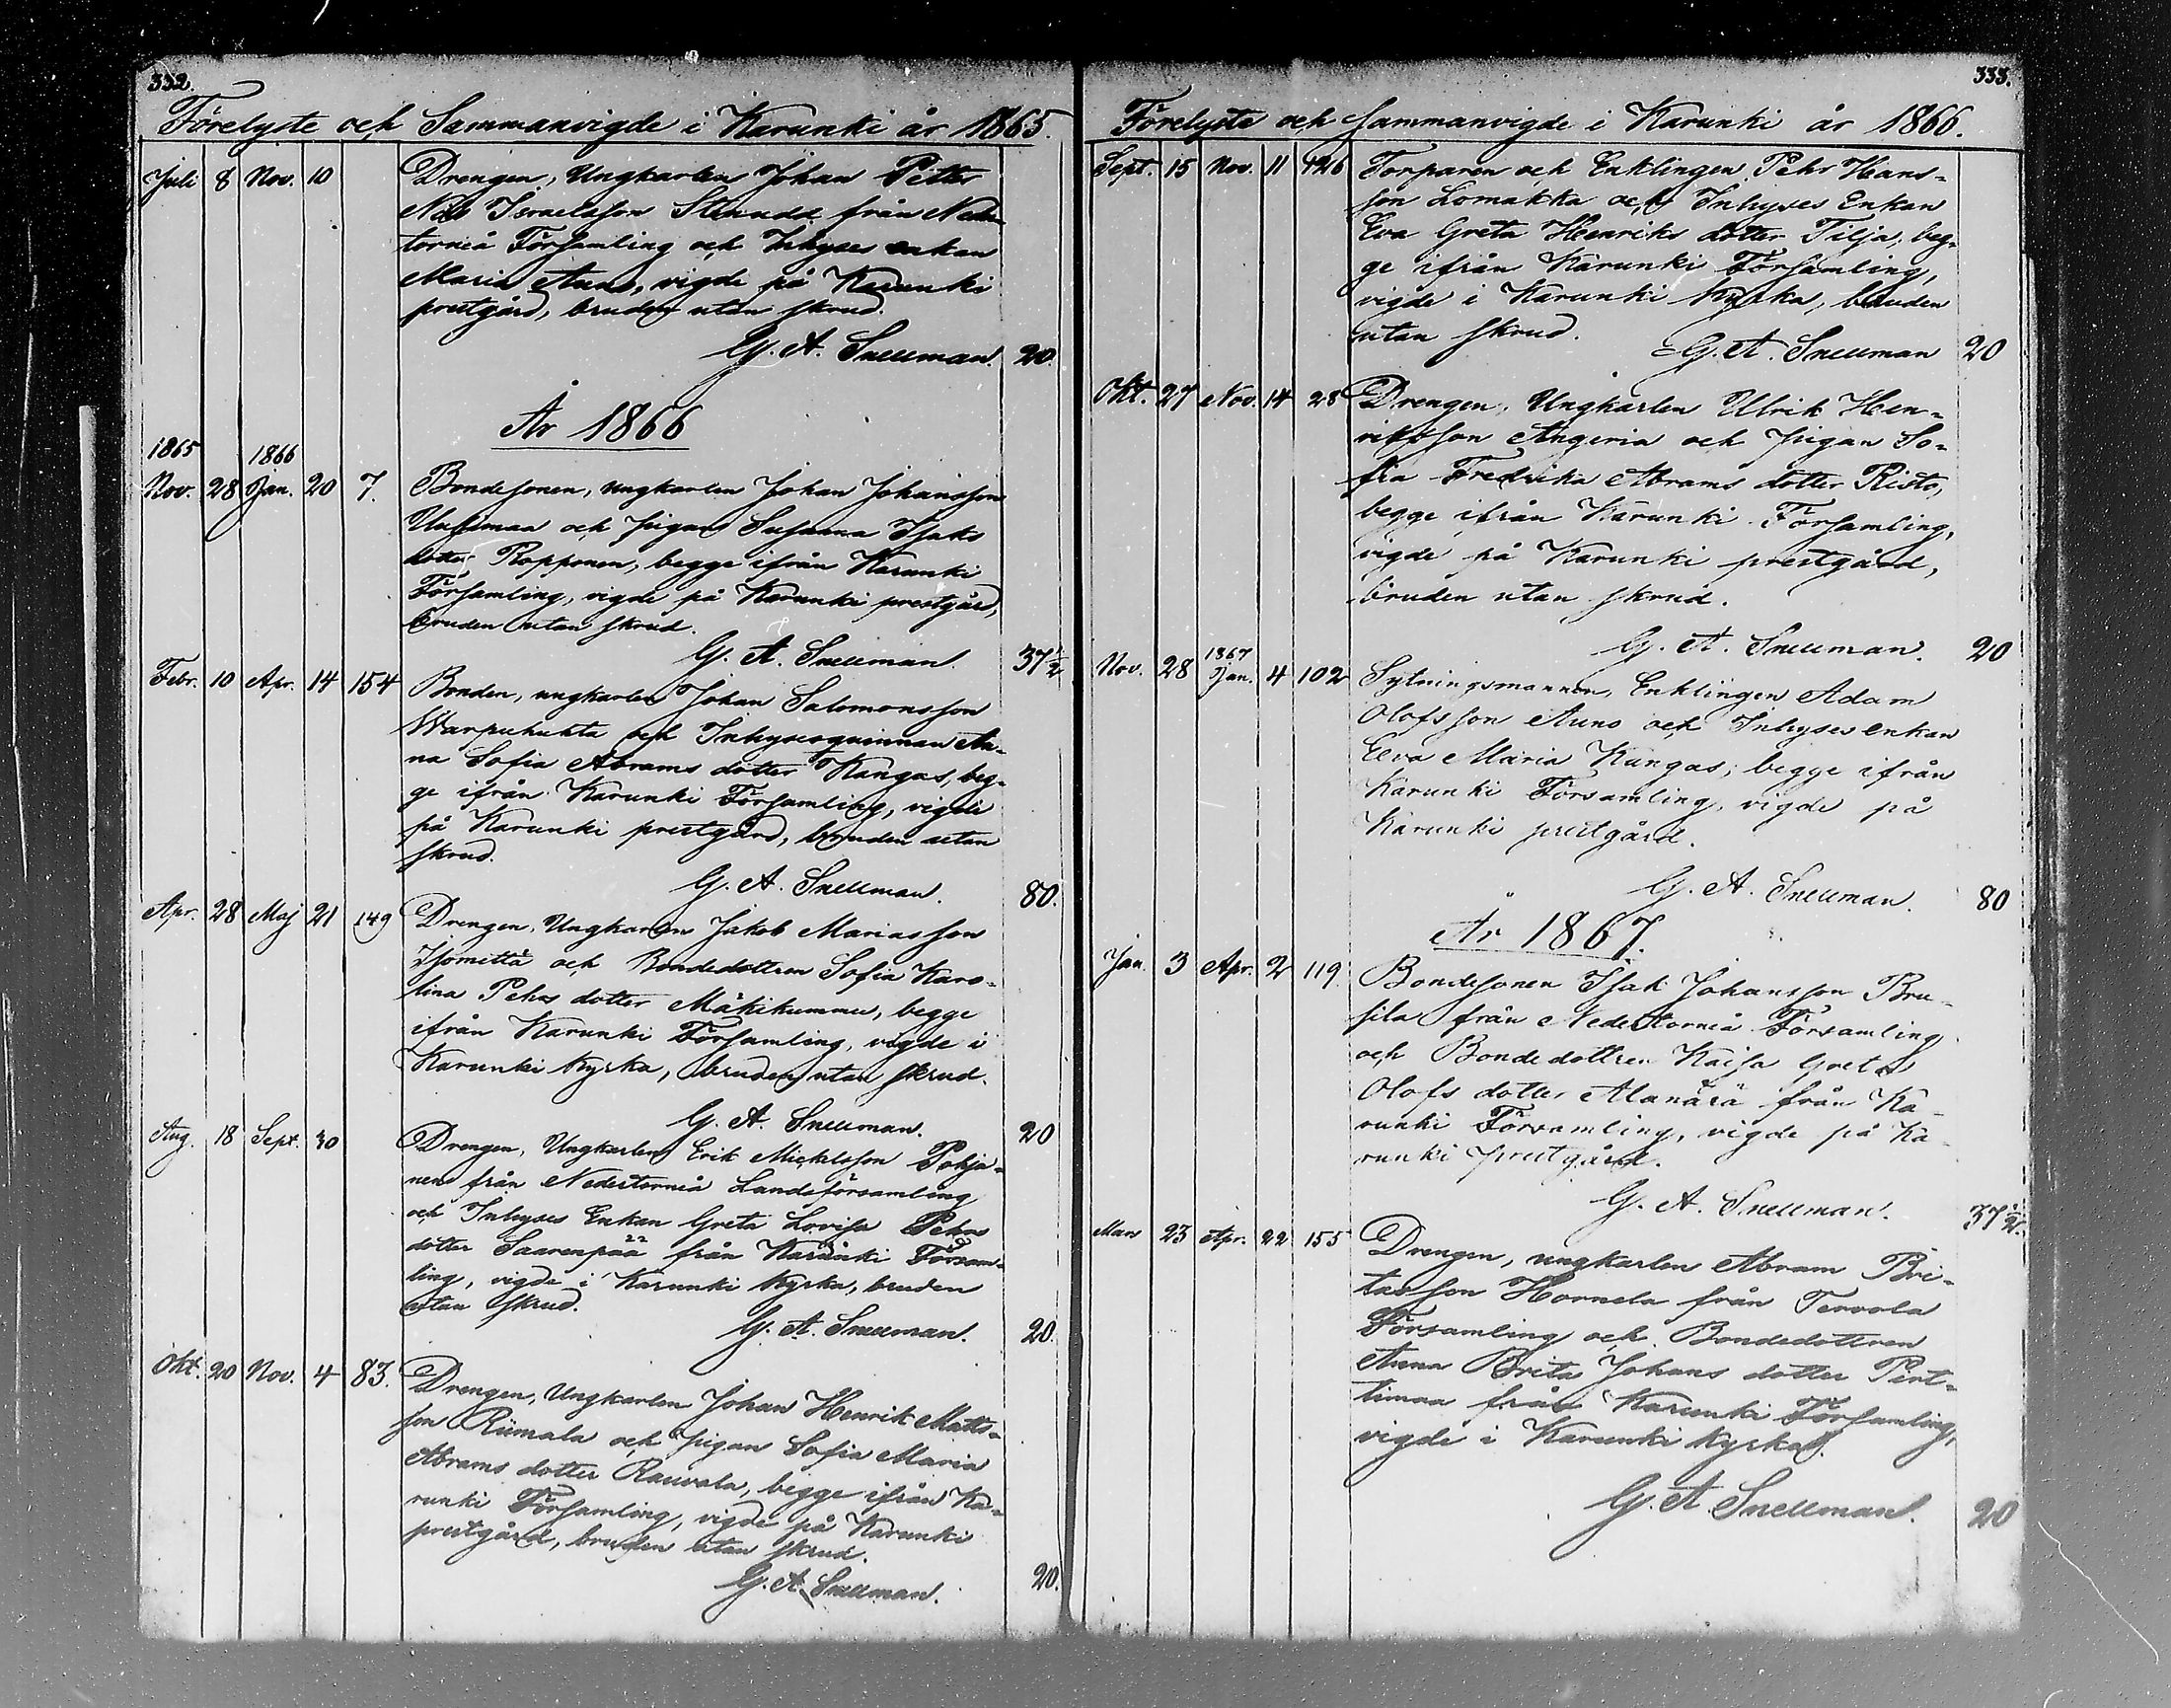 332.
Förelyste och Sammanvigde i Karunki år 1865.
Juli 8 Nov. 10 Drengen, Ungkarlen Johan Petter
Israelsson från Neder
torneå Församling och Inhyses enkan
Maria Auno, vigde på Karunki
prestgård, bruden utan skrud.
G. A. Snellman. 20.
År 1866
1865 1866
Nov. 28 Jan. 20 7. Bondesonen, ungkarlen Johan Johansson
Uusimaa och pigan Susanna Isaks
dotter Ropponen, begge ifrån Karunki
Församling, vigde på Karunki prestgård,
bruden utan skrud.
G. A. Snellman. 37 1/2
Febr. 10 Apr. 14 154 Bonden, ungkarlen Johan Salomonsson
Warpuhuhta och Inhysesqvinnan An-
na Sofia Abrams dotter Kangas, beg-
ge ifrån Karunki Församling, vigde
på Karunki prestgård, bruden utan
skrud.
G. A. Snellman. 80.
Apr. 28 Maj 21 149 Drengen, Ungkarlen Jakob Mariasson
Isomitta och Bondedottren Sofia Karo-
lina Pehrs dotter Mäkikummu, begge
ifrån Karunki Församling, vigde i
Karunki Kyrka, bruden utan skrud.
G. A. Snellman. 20
Aug. 18 Sept. 30 Drengen, Ungkarlen Erik Mickelsson Pohja-
nen från Nedertorneå Landsförsamling
och Inhyses Enkan Greta Lovisa Pehrs
dotter Saarenpää från Karunki Försam-
ling, vigde i Karunki Kyrka, bruden
utan skrud.
G. A. Snellman. 20.
Okt. 20 Nov. 4 83. Drengen, Ungkarlen Johan Henrik Matts-
son Riimala och pigan Sofia Maria
Abrams dotter Rauvala, begge ifrån Ka-
runki Församling, vigde på Karunki
prestgård, bruden utan skrud.
G. A. Snellman. 20.
333.
Förelyste och Sammanvigde i Karunki år 1866.
Sept. 15 Nov. 11 126 Torparen och Enklingen Pehr Hans-
son Lomakka och Inhyses Enkan
Eva Greta Henriks dotter Tilja, beg-
ge ifrån Karunki Församling,
vigde i Karunki Kyrka, bruden
utan skrud.
G. A. Snellman 20
Okt. 27 Nov. 14 28 Drengen, Ungkarlen Ulrik Hen-
riksson Angeria och pigan So-
fia Fredrika Abrams dotter Risto,
begge ifrån Karunki Församling,
vigde på Karunki prestgård,
bruden utan skrud.
G. A. Snellman. 20
1867
Nov. 28 Jan. 4 102 Sytningsmannen, Enklingen Adam
Olofsson Auno och Inhyses enkan
Eva Maria Kangas, begge ifrån
Karunki Församling, vigde på
Karunki prestgård.
G. A. Snellman. 80
År 1867.
Jan. 3 Apr. 2 119. Bondesonen Isak Johansson Bru-
sila från Nedertorneå Församling
och Bondedottren Kaisa Greta
Olofs dotter Alanärä från Ka-
runki Församling, vigde på Ka-
runki prestgård.
G. A. Snellman. 37 1/2.
Mars 23 Apr. 22 155 Drengen, ungkarlen Abram Bri-
tasson Hornela från Tervola
Församling och Bondedottren
Anna Brita Johans dotter Pirt-
timaa från Karunki Församling,
vigde i Karunki Kyrka.
G. A. Snellman. 20